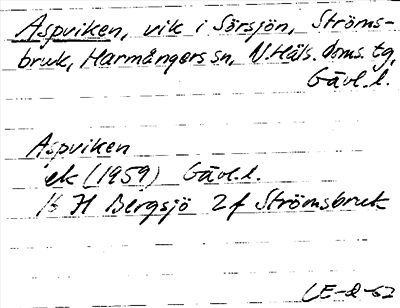 Aspviken, vik i Sörsjön, Ströms-
bruk, Harmångers sn, N.Häls. doms. tg,
Gävl.l.
Aspviken
ek (1959) Gävl.l.
16 H Bergsjö 2f Strömsbruk